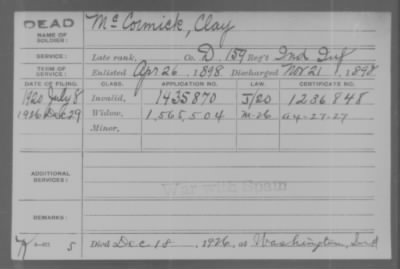 DEAD
Mc Cormick, Clay
NAME OF SOLDIER:
SERVICE:
Late rank, Co. D, 159 Reg't Ind Inf
TERM OF SERVICE:
Enlisted Apr 26, 1898, Discharged Nov 21, 1898
DATE OF FILING. CLASS. APPLICATION NO. LAW. CERTIFICATE NO.
1920 July 8 Invalid, 1435870 J/20 1236848
1926 Dec 29 Widow, 1,565,504 M-26 a4-27-27
Minor,
ADDITIONAL SERVICES:
War with Spain
REMARKS:
5 Died Dec 18, 1926, at Washington, Ind